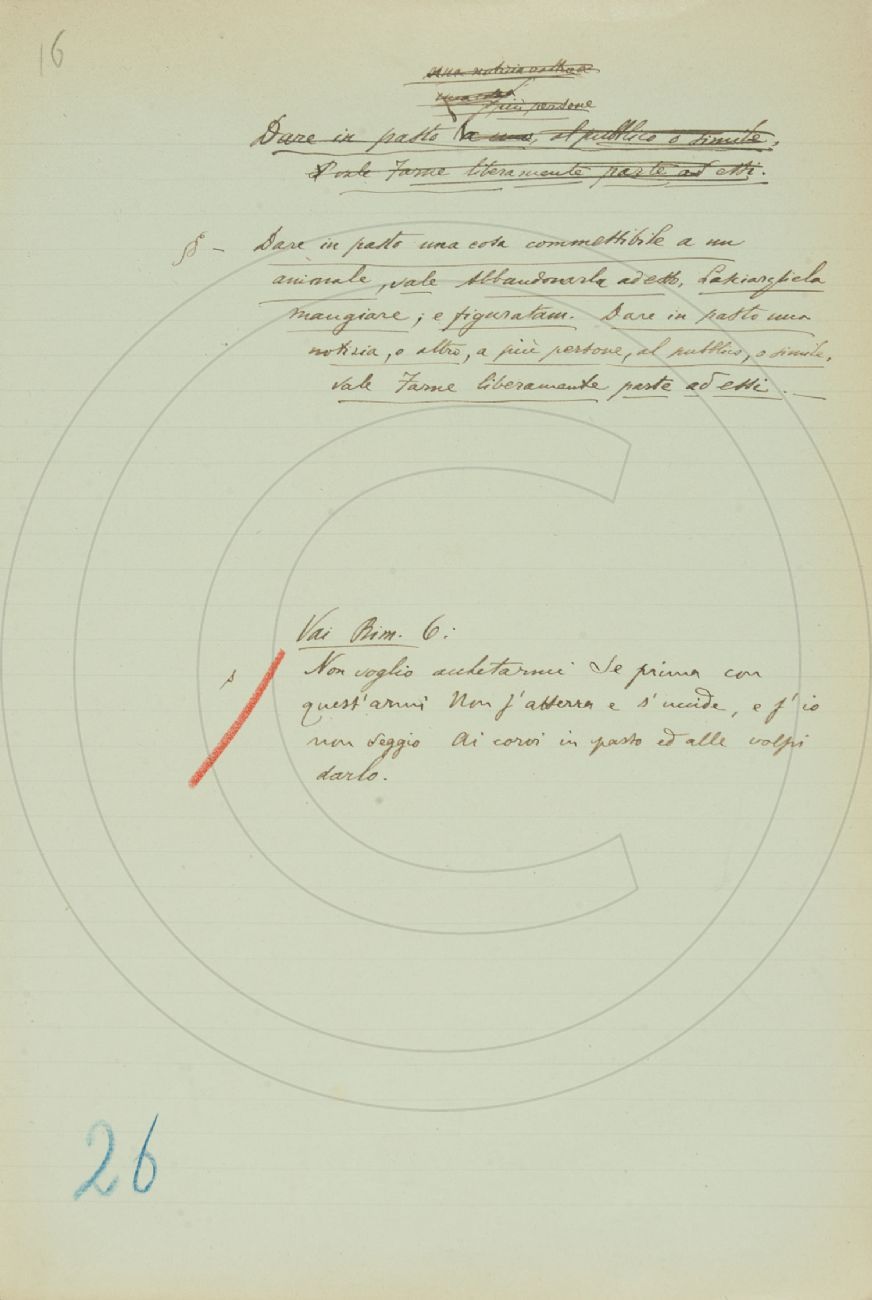 16
una notizia o altro a
una cosa
più persone
Dare in pasto a uno, al pubblico o simile,
vale Farne liberamente parte ad essi.
§ – Dare in pasto una cosa commestibile a un
animale, vale Abbandonarla ad esso, Lasciargliela
mangiare; e figuratam. Dare in pasto una
notizia, o altro, a più persone, al pubblico, o simile,
vale Farne liberamente parte ad essi. –
Vai Rim. 6:
Non voglio Se prima con
quest'armi Non s'atterra e s'uccide, e s'io
non veggio Ai corvi in pasto ed alle volpi
darlo.
26